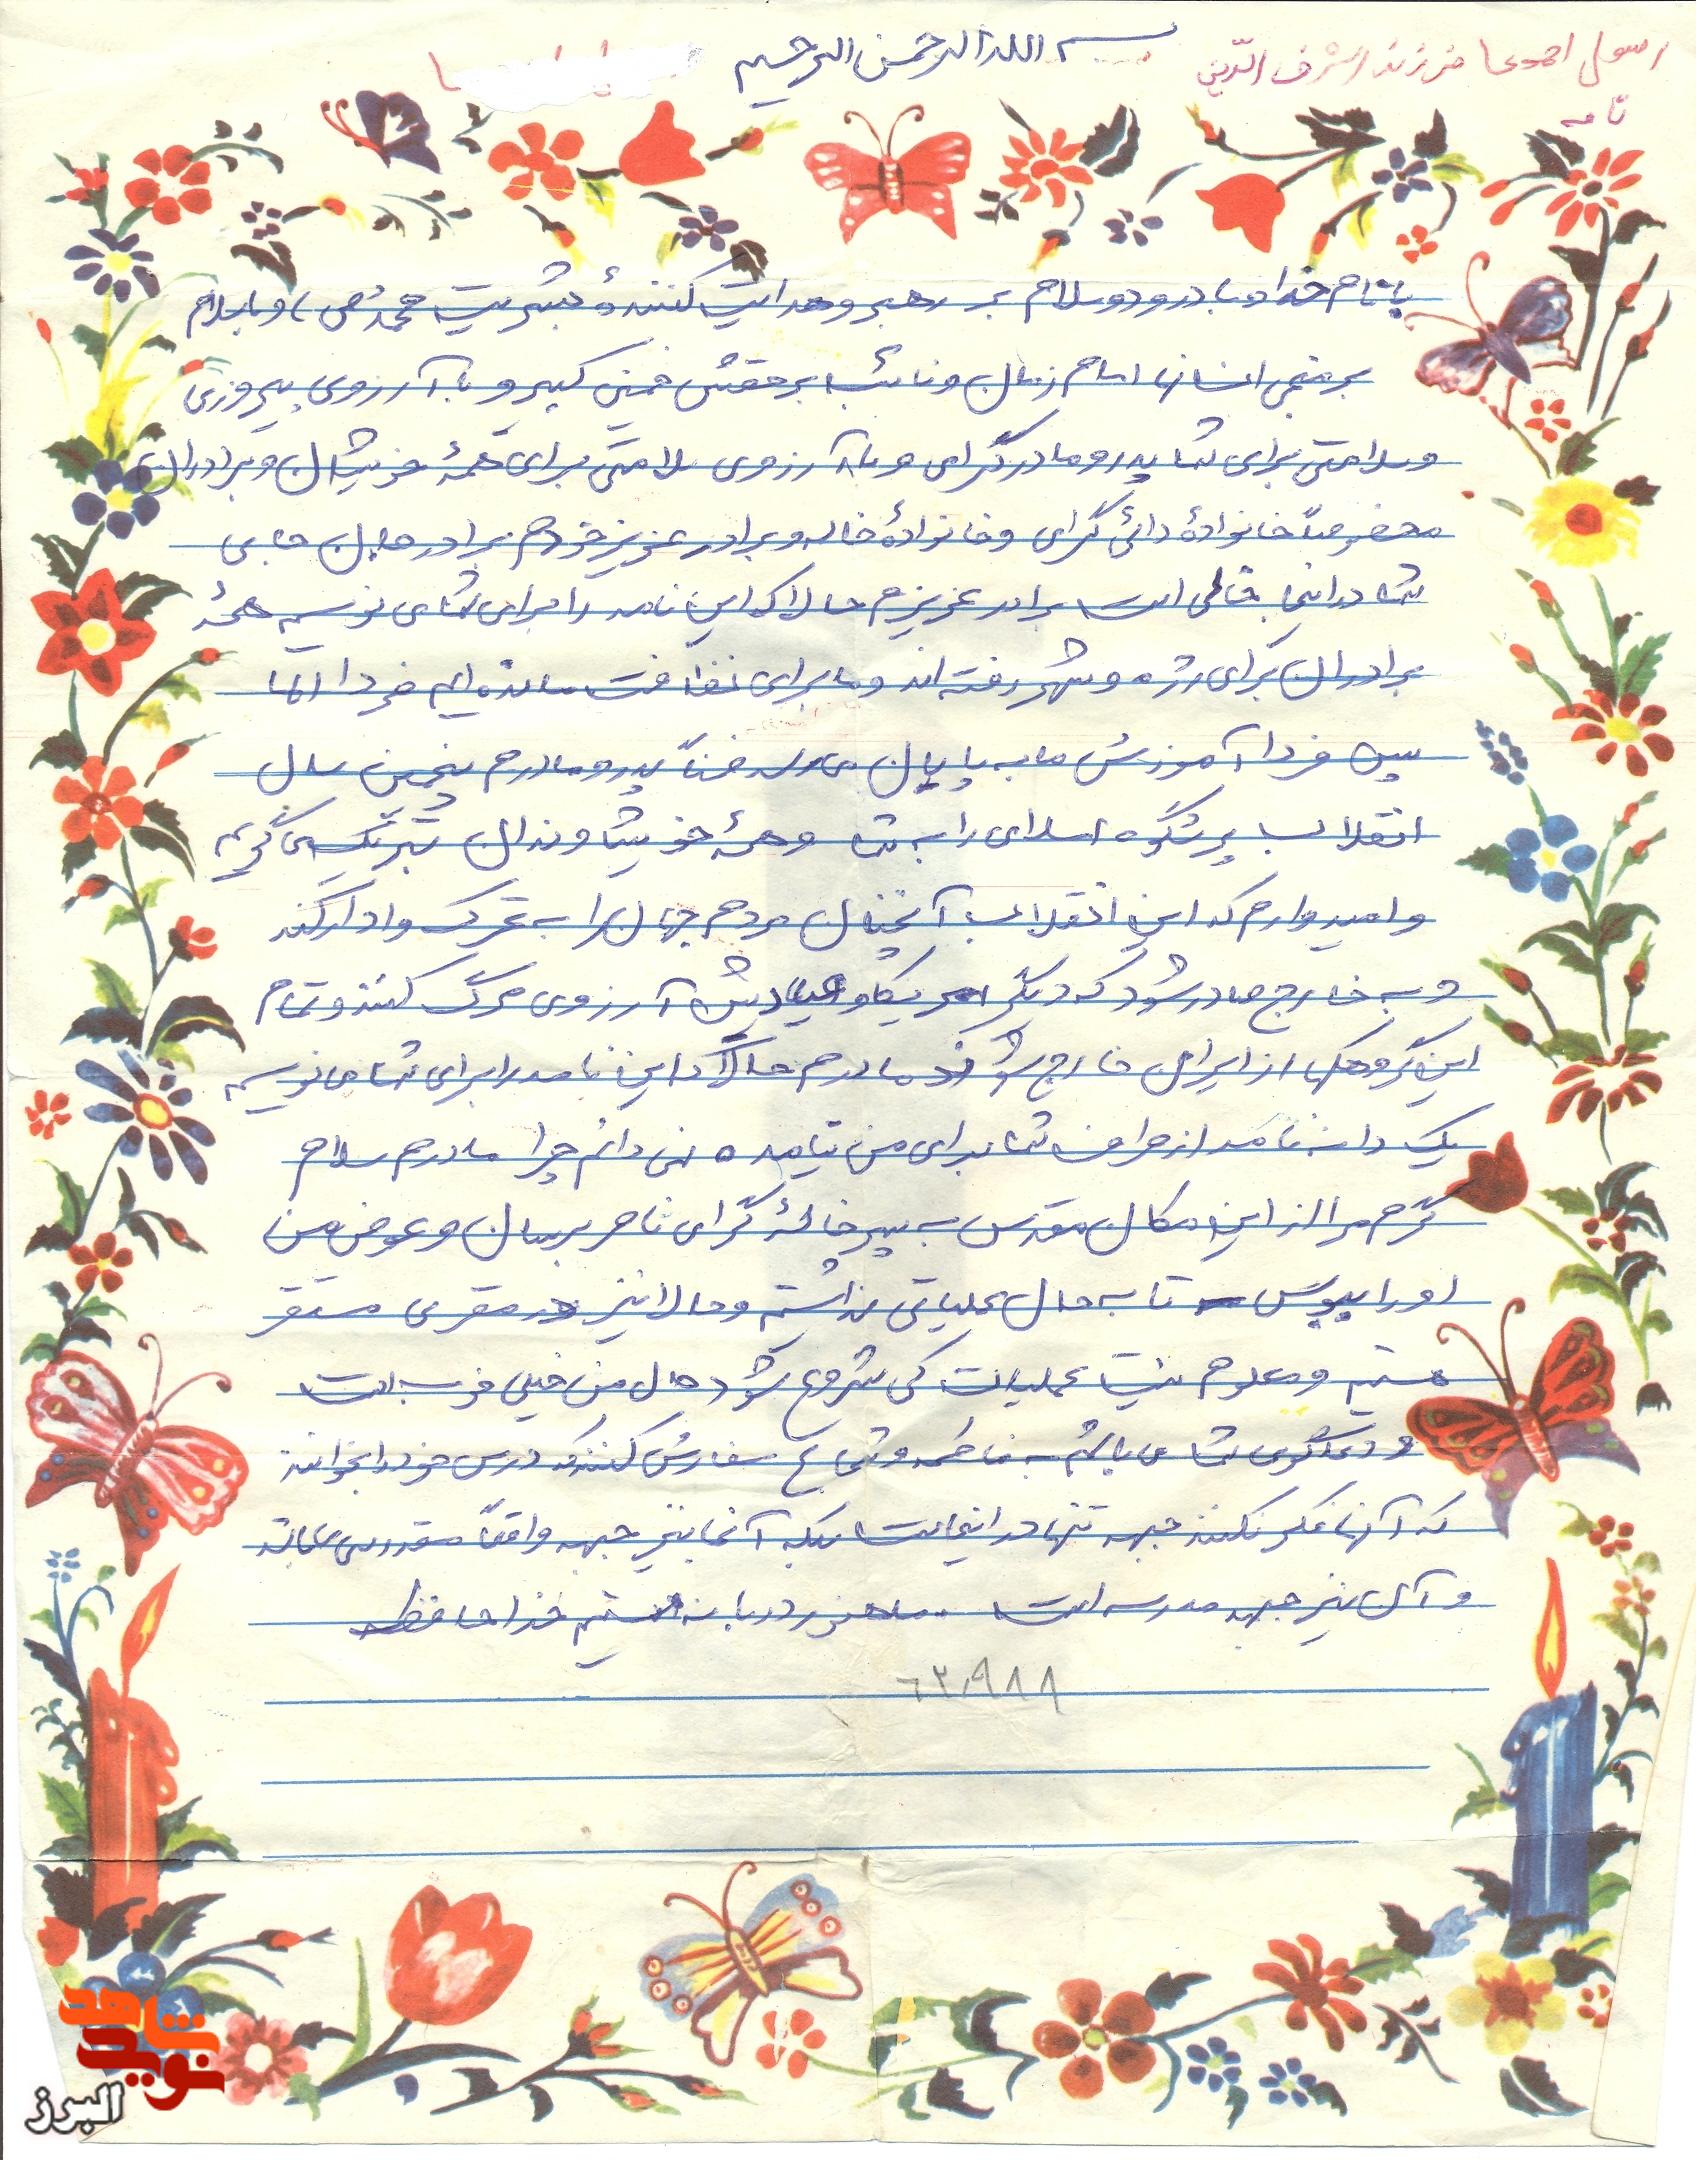 بسم الله الرحمن الرحیم
رسول احمدی فرزند اشرف الدین
نامه
با نام خدا و با درود و سلام بر رهبر و هدایت کنندهٔ بشریت محمد (ص) و با سلام
بر منجی انسانها امام زمان و نائب برحقش خمینی کبیر و با آرزوی پیروزی
و سلامتی برای شما پدر و مادر گرامی و با آرزوی سلامتی برای همهٔ خویشان و برادران
مخصوصاً خانوادهٔ دائی گرامی و خانوادهٔ خاله و برادر عزیز خودم برادر جان جای
شما در اینجا خالی است برادر عزیزم حالا که این نامه را برای شما می نویسم همهٔ
برادران برای رژه و شهر رفته اند و ما برای نظافت مانده ایم فردا
پس فردا آموزش ما به پایان می رسد ضمناً پدر و مادرم پنجمین سال
انقلاب پرشکوه اسلامی را به شما و همهٔ خویشاوندان تبریک می گویم
و امیدوارم که این انقلاب آنچنان مردم جهان را به تحرک وادار کند
و به خارج صادر شود که دیگر امریکا و آرزوی مرگ کنند و تمام
این گروهکها از ایران خارج شوند مادرم حالا که این نامه را برای شما می نویسم
یک دانه نامه از طرف شما برای من نیامده نمی دانم چرا مادرم سلام
گرم مرا از این مکان مقدس به پسر خالهٔ گرامی ناصر برسان و عوض من
او را ببوس تا به حال عملیاتی نداشتیم و حالا نیز در مقری مستقر
هستیم و معلوم نیست عملیات کی شروع شود حال من خیلی خوب است
و دعاگوی شما می باشم به فاطمه و سفارش کنید که درس خود را بخوانند
که آنها فکر نکنند جبهه تنها در اینجاست بلکه آنجا نیز جبهه واقعاً مقدسی می باشد
و آن نیز جبهه مدرسه است ما هنوز در بانه هستیم خداحافظ
۶۳,۹۸۸
شاهد
نوید
البرز